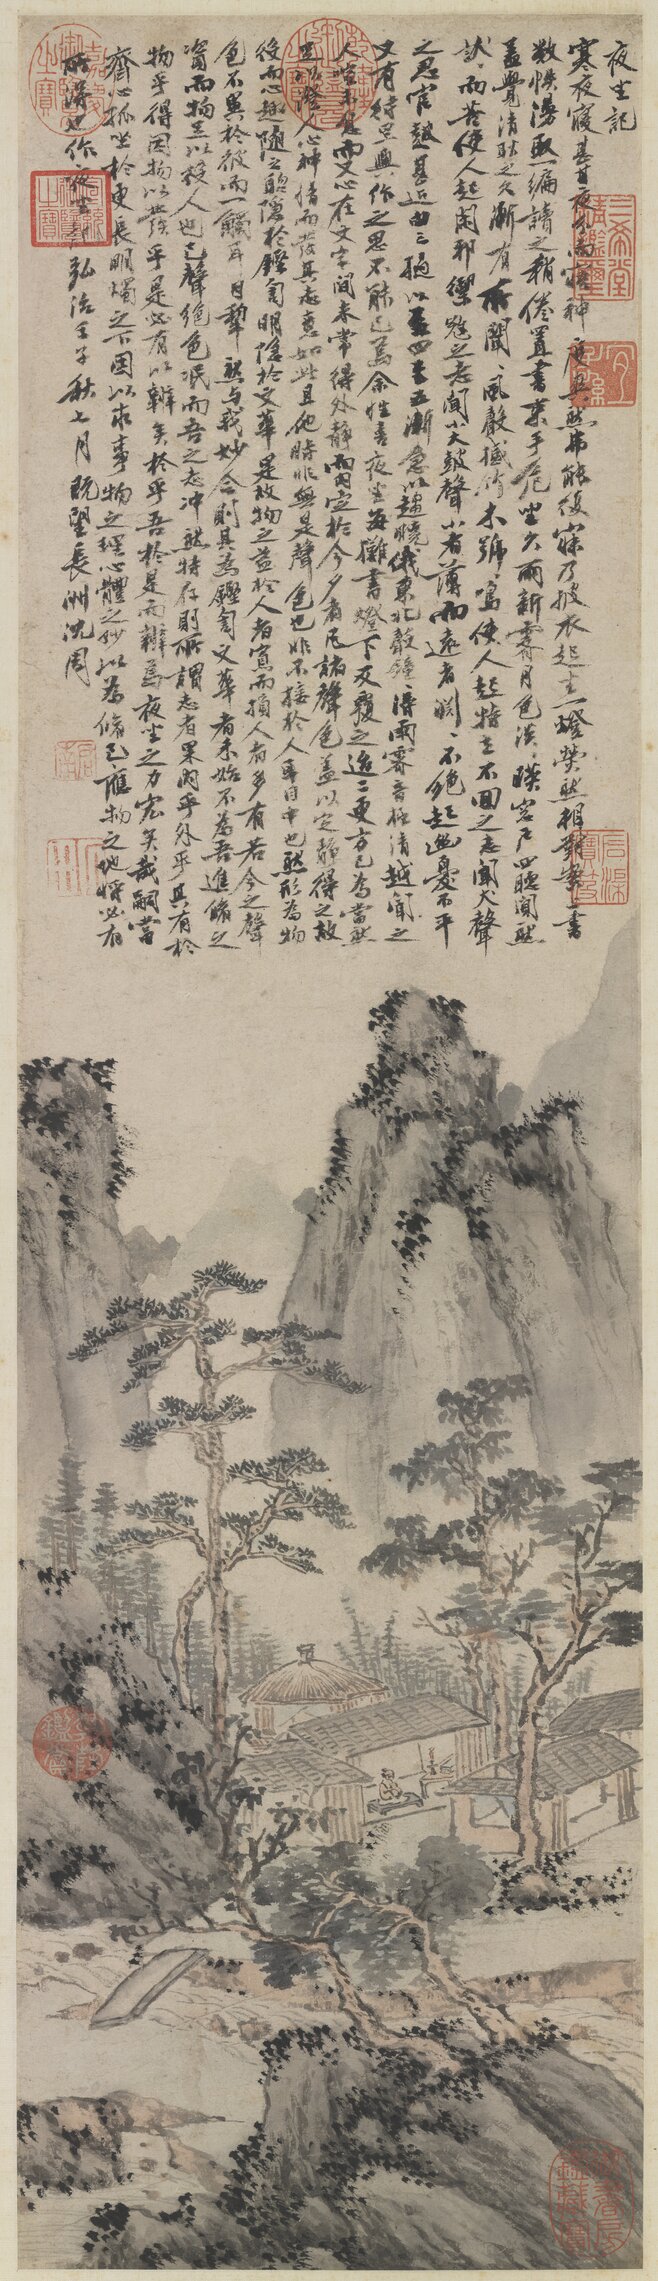 夜坐記
寒夜寢甚甘夜分而寤神度爽然弗能復寐乃披衣起坐一燈熒然相對案上書
數帙漫取一編讀之稍倦置書束手危坐久雨新霽月色淡淡映窗戶四聽闃然
蓋覺清耿之久漸有所聞聞風聲撼竹木號號鳴使人起特立不回之志聞犬聲
狺狺而苦使人起閑邪禦寇之志聞小大鼓聲小者薄而遠者淵淵不絕起幽憂不平
之思官鼓甚近由三撾以至四至五漸急以趨曉俄東北聲鐘鐘得雨霽音極清越聞之
又有待旦興作之思不能已焉余性喜夜坐每攤書燈下反覆之迨二更方已為當然
人喧未息而又心在文字間未常得外靜而內定於今夕者凡諸聲色蓋以定靜得之故
足以澄人心神情而發其志意如此且他時非無是聲色也非不接於人耳目中也然形為物
役而心趣隨之聰隱於鏗訇明隱於文華是故物之益於人者寡而損人者多有若今之聲
色不異於彼而一觸耳目犁然與我妙合則其為鏗訇文華者未始不為吾進修之
資而物足以役人也已聲絕色泯而吾之志冲然特存則所謂志者果內乎外乎其有於
物乎得因物以發乎是必有以辨矣於乎吾於是而辨焉夜坐之力宏矣哉嗣當
齋心孤坐於更長明燭之下因以求事物之理心體之妙以為修己應物之地將必有
所得也作夜坐記弘治壬子秋七月既望長洲沈周
嘉慶御覽之寶
乾隆御覽之寶
三希堂精鑑璽
宜子孫
石渠寶笈
乾隆鑑賞
御書房鑑藏寶